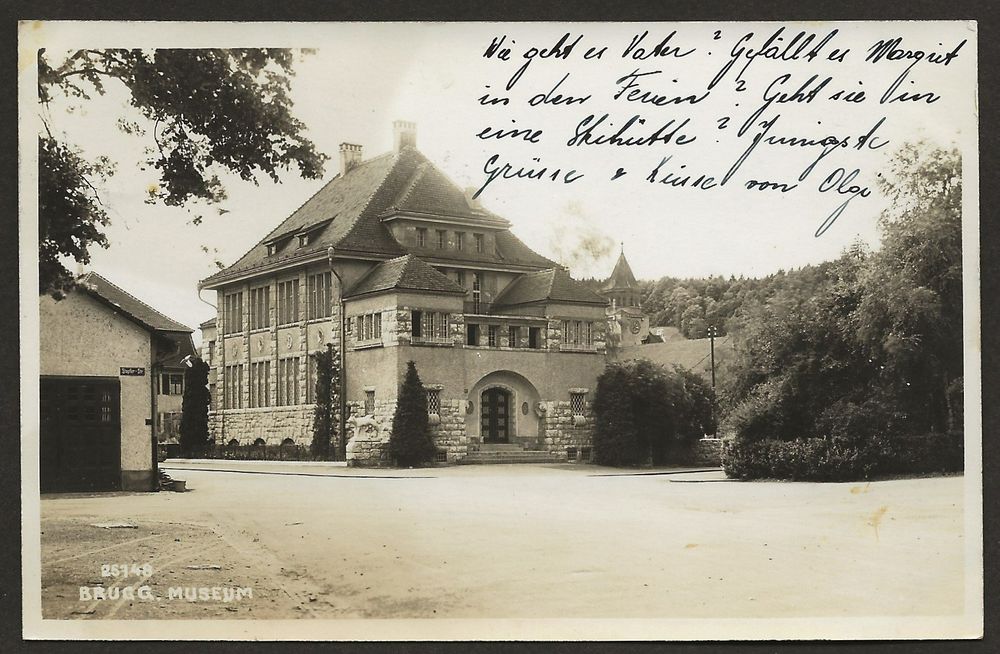 Wie geht es Vater? Gefällt es Margrit
in den Ferien? Geht sie in
eine Skihütte? Innigste
Grüsse & Küsse von Olgi
Stapfer-Str.
25148
BRUGG. MUSEUM